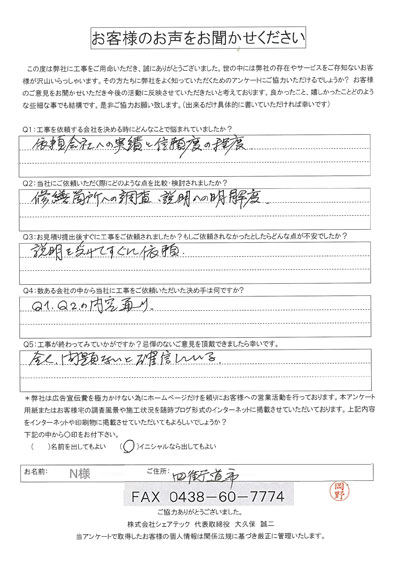 お客様のお声をお聞かせください
この度は弊社に工事をご用命いただき、誠にありがとうございました。世の中には弊社の存在やサービスをご存知ないお客
様が沢山いらっしゃいます。その方たちに弊社をよく知っていただくためのアンケートにご協力いただけるでしょうか？ お客様
のご意見をお聞かせいただき今後の活動に反映させていきたいと考えております。良かったこと、嬉しかったことどのよう
な些細な事でも結構です。是非ご協力お願い致します。（出来るだけ具体的に書いていただければ幸いです）
Q1：工事を依頼する会社を決める時にどんなことで悩まれていましたか？
依頼会社への実績と信頼度の程度
Q2：当社にご依頼いただく際にどのような点を比較・検討されましたか？
修繕箇所への調査、説明への明解度
Q3：お見積り提出後すぐに工事をご依頼されましたか？もしご依頼されなかったとしたらどんな点が不安でしたか？
説明を受けてすぐに依頼
Q4：数ある会社の中から当社に工事をご依頼いただいた決め手は何ですか？
Q1、Q2の内容通り
Q5：工事が終わってみていかがですか？忌憚のないご意見を頂戴できましたら幸いです。
全く、問題ないと確信している
＊弊社は広告宣伝費を極力かけない為にホームページだけを頼りにお客様への営業活動を行っております。本アンケート
用紙またはお客様宅の調査風景や施工状況を随時ブログ形式のインターネットに掲載させていただいております。上記内容
をインターネットや印刷物に掲載させていただいてもよろしいでしょうか？
下記の中から〇印をお付下さい。
（ ）名前を出してもよい （〇）イニシャルなら出してもよい
お名前： N様 ご住所： 四街道市
FAX 0438-60-7774
岡野
ご協力ありがとうございました。
株式会社シェアテック 代表取締役 大久保 誠二
当アンケートで取得したお客様の個人情報は関係法規に基づき厳正に管理いたします。